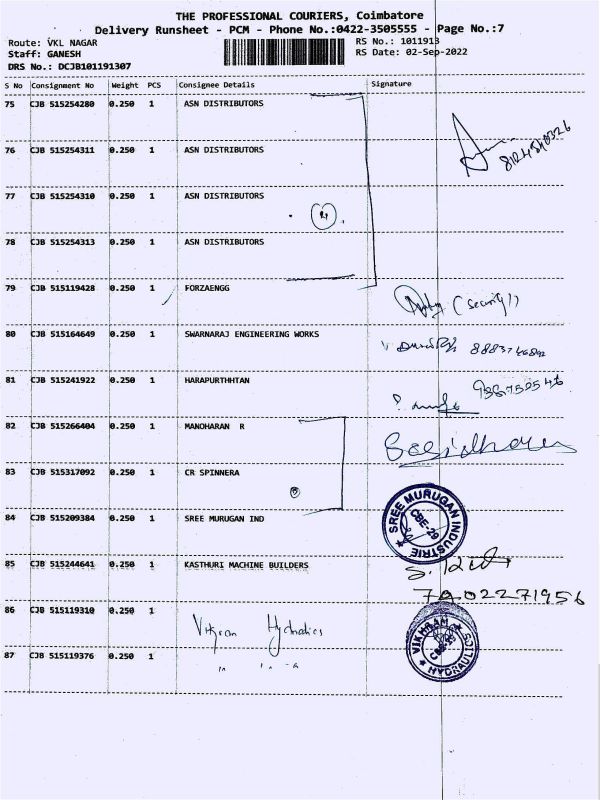 THE PROFESSIONAL COURIERS, Coimbatore
Delivery Runsheet - PCM - Phone No.:0422-3505555 - Page No.:7
Route: VKL NAGAR RS No.: 1011913
Staff: GANESH RS Date: 02-Sep-2022
DRS No.: DCJB101191307
S No Consignment No Weight PCS Consignee Details Signature
75 CJB 515254280 0.250 1 ASN DISTRIBUTORS
76 CJB 515254311 0.250 1 ASN DISTRIBUTORS
77 CJB 515254310 0.250 1 ASN DISTRIBUTORS
78 CJB 515254313 0.250 1 ASN DISTRIBUTORS
79 CJB 515119428 0.250 1 FORZAENGG (Security)
80 CJB 515164649 0.250 1 SWARNARAJ ENGINEERING WORKS
81 CJB 515241922 0.250 1 HARAPURTHHTAN
82 CJB 515266404 0.250 1 MANOHARAN R
83 CJB 515317092 0.250 1 CR SPINNERA
84 CJB 515209384 0.250 1 SREE MURUGAN IND SREE MURUGAN INDUSTRIE CBE-29
85 CJB 515244641 0.250 1 KASTHURI MACHINE BUILDERS
7402271956
86 CJB 515119310 0.250 1 Vikram Hydraulics VIKHRAM HYDRAULICS
87 CJB 515119376 0.250 1